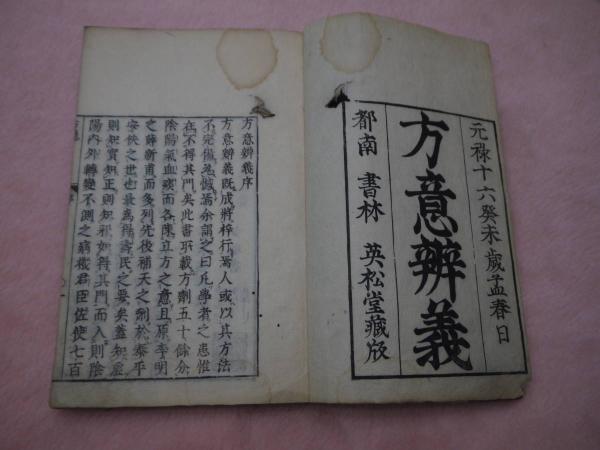 元禄十六癸未歳孟春日
方意辨義
都南 書林 英松堂藏版
方意辨義序
方意辨義既成將梓行焉人或以其方法
不完備為憾焉余謂之曰凡學者之患惟
在不得其門矣此書所載方劑五十餘分
陰陽氣血寒而各陳立方之意且原李明
之辭新甫而多列先後補天之劑於泰平
安佚之世也最為得濟民之要矣蓋知虛
則知實知正則知邪如得其門而入則陰
陽內外轉變不測之病機君臣佐使七百